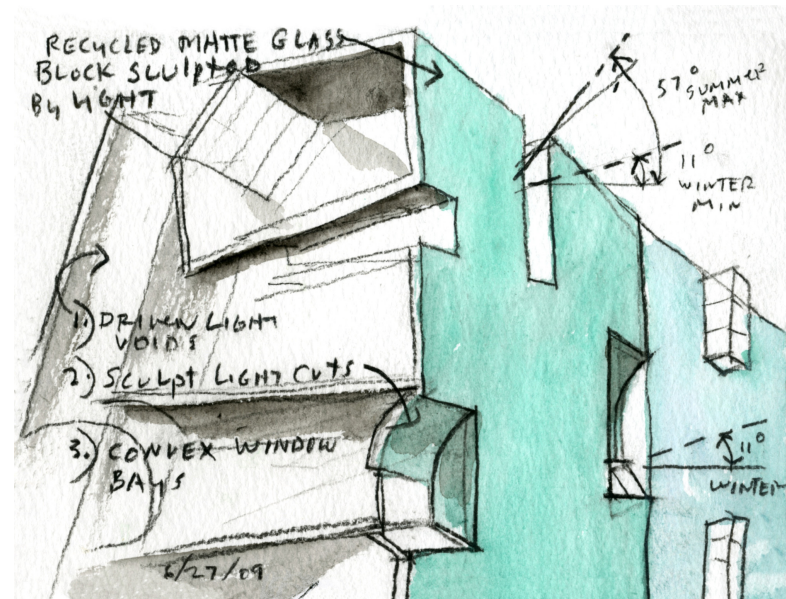 RECYCLED MATTE GLASS
BLOCK SCULPTED
BY LIGHT
57° SUMMER
MAX
11°
WINTER
MIN
1.) DRIVEN LIGHT
VOIDS
2.) SCULPT LIGHT CUTS
3.) CONVEX WINDOW
BAYS
11°
WINTER
6/27/09